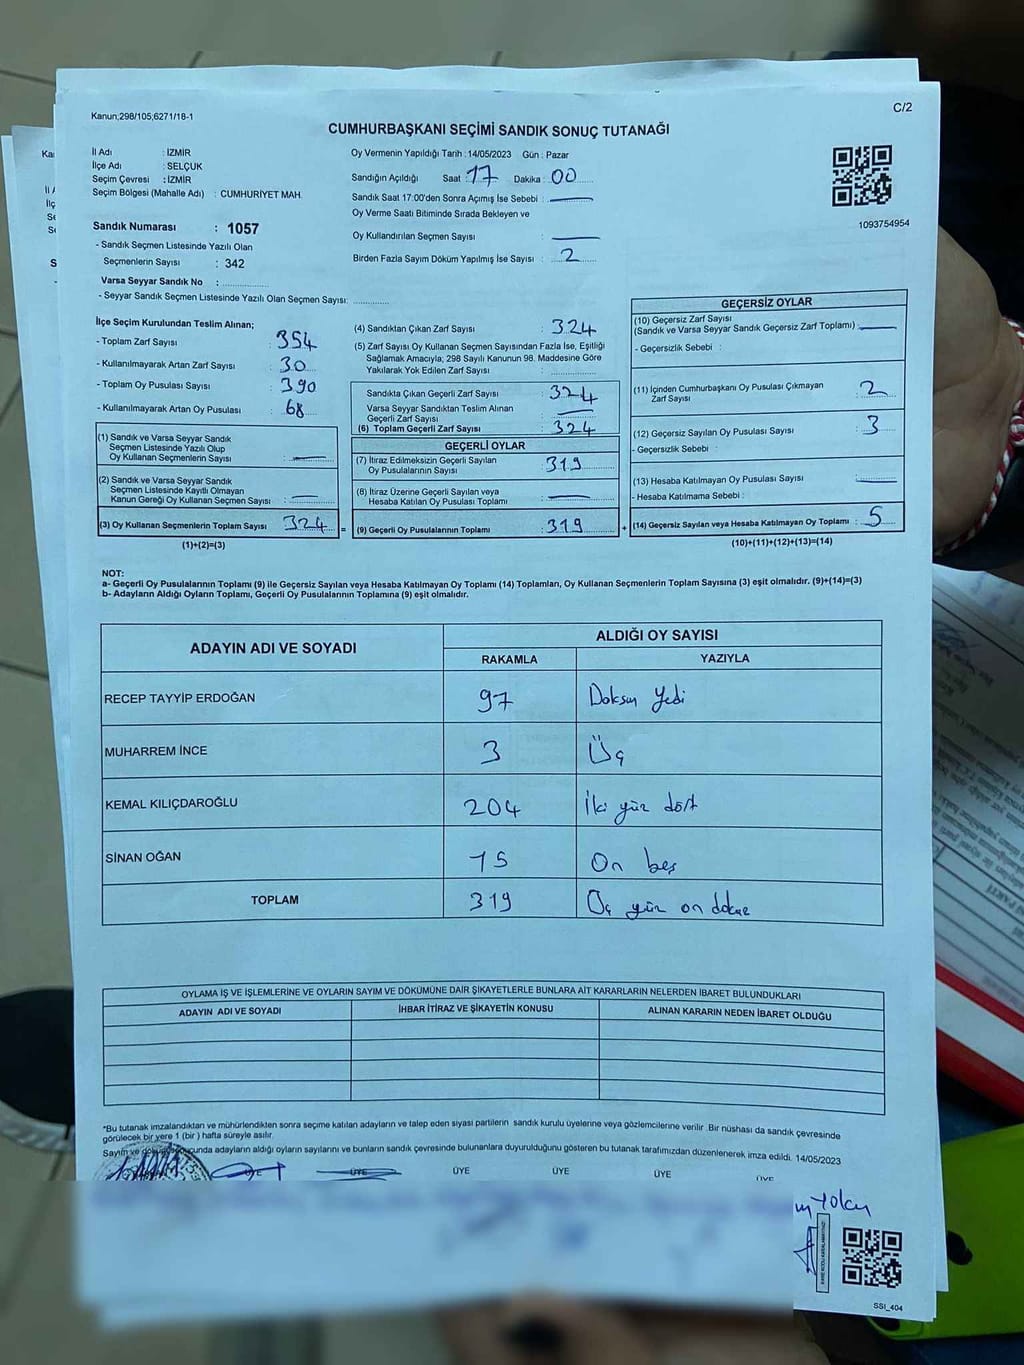 C/2
Kanun;298/105;6271/18-1
CUMHURBAŞKANI SEÇİMİ SANDIK SONUÇ TUTANAĞI
İl Adı : İZMİR
İlçe Adı : SELÇUK
Seçim Çevresi : İZMİR
Seçim Bölgesi (Mahalle Adı) : CUMHURİYET MAH.
Sandık Numarası : 1057
- Sandık Seçmen Listesinde Yazılı Olan
Seçmenlerin Sayısı : 342
Varsa Seyyar Sandık No :
- Seyyar Sandık Seçmen Listesinde Yazılı Olan Seçmen Sayısı:
Oy Vermenin Yapıldığı Tarih : 14/05/2023 Gün : Pazar
Sandığın Açıldığı Saat : 17 Dakika : 00
Sandık Saat 17:00'den Sonra Açımış İse Sebebi :
Oy Verme Saati Bitiminde Sırada Bekleyen ve
Oy Kullandırılan Seçmen Sayısı :
Birden Fazla Sayım Döküm Yapılmış İse Sayısı : 2
1093754954
İlçe Seçim Kurulundan Teslim Alınan;
- Toplam Zarf Sayısı : 354
- Kullanılmayarak Artan Zarf Sayısı : 30
- Toplam Oy Pusulası Sayısı : 390
- Kullanılmayarak Artan Oy Pusulası : 68
(1) Sandık ve Varsa Seyyar Sandık
Seçmen Listesinde Yazılı Olup
Oy Kullanan Seçmenlerin Sayısı :
(2) Sandık ve Varsa Seyyar Sandık
Seçmen Listesinde Kayıtlı Olmayan
Kanun Gereği Oy Kullanan Seçmen Sayısı :
(3) Oy Kullanan Seçmenlerin Toplam Sayısı : 324 =
(1)+(2)=(3)
(4) Sandıktan Çıkan Zarf Sayısı : 324
(5) Zarf Sayısı Oy Kullanan Seçmen Sayısından Fazla İse, Eşitliği
Sağlamak Amacıyla; 298 Sayılı Kanunun 98. Maddesine Göre
Yakılarak Yok Edilen Zarf Sayısı :
Sandıkta Çıkan Geçerli Zarf Sayısı : 324
Varsa Seyyar Sandıktan Teslim Alınan
Geçerli Zarf Sayısı :
(6) Toplam Geçerli Zarf Sayısı : 324
GEÇERLİ OYLAR
(7) İtiraz Edilmeksizin Geçerli Sayılan
Oy Pusulalarının Sayısı : 319
(8) İtiraz Üzerine Geçerli Sayılan veya
Hesaba Katılan Oy Pusulası Toplamı :
(9) Geçerli Oy Pusulalarının Toplamı : 319 +
GEÇERSİZ OYLAR
(10) Geçersiz Zarf Sayısı
(Sandık ve Varsa Seyyar Sandık Geçersiz Zarf Toplamı) :
- Geçersizlik Sebebi :
(11) İçinden Cumhurbaşkanı Oy Pusulası Çıkmayan
Zarf Sayısı : 2
(12) Geçersiz Sayılan Oy Pusulası Sayısı : 3
- Geçersizlik Sebebi :
(13) Hesaba Katılmayan Oy Pusulası Sayısı :
- Hesaba Katılmama Sebebi :
(14) Geçersiz Sayılan veya Hesaba Katılmayan Oy Toplamı : 5
(10)+(11)+(12)+(13)=(14)
NOT:
a- Geçerli Oy Pusulalarının Toplamı (9) ile Geçersiz Sayılan veya Hesaba Katılmayan Oy Toplamı (14) Toplamları, Oy Kullanan Seçmenlerin Toplam Sayısına (3) eşit olmalıdır. (9)+(14)=(3)
b- Adayların Aldığı Oyların Toplamı, Geçerli Oy Pusulalarının Toplamına (9) eşit olmalıdır.
ADAYIN ADI VE SOYADI
ALDIĞI OY SAYISI
RAKAMLA YAZIYLA
RECEP TAYYİP ERDOĞAN 97 Doksan Yedi
MUHARREM İNCE 3 Üç
KEMAL KILIÇDAROĞLU 204 İki yüz dört
SİNAN OĞAN 15 On beş
TOPLAM 319 Üç yüz on dokuz
OYLAMA İŞ VE İŞLEMLERİNE VE OYLARIN SAYIM VE DÖKÜMÜNE DAİR ŞİKAYETLERLE BUNLARA AİT KARARLARIN NELERDEN İBARET BULUNDUKLARI
ADAYIN ADI VE SOYADI İHBAR İTİRAZ VE ŞİKAYETİN KONUSU ALINAN KARARIN NEDEN İBARET OLDUĞU
*Bu tutanak imzalandıktan ve mühürlendikten sonra seçime katılan adayların ve talep eden siyasi partilerin sandık kurulu üyelerine veya gözlemcilerine verilir .Bir nüshası da sandık çevresinde
görülecek bir yere 1 (bir ) hafta süreyle asılır.
Sayım ve döküm sonucunda adayların aldığı oyların sayılarını ve bunların sandık çevresinde bulunanlara duyurulduğunu gösteren bu tutanak tarafımızdan düzenlenerek imza edildi. 14/05/2023
ÜYE ÜYE ÜYE ÜYE ÜYE ÜYE
SSI_404